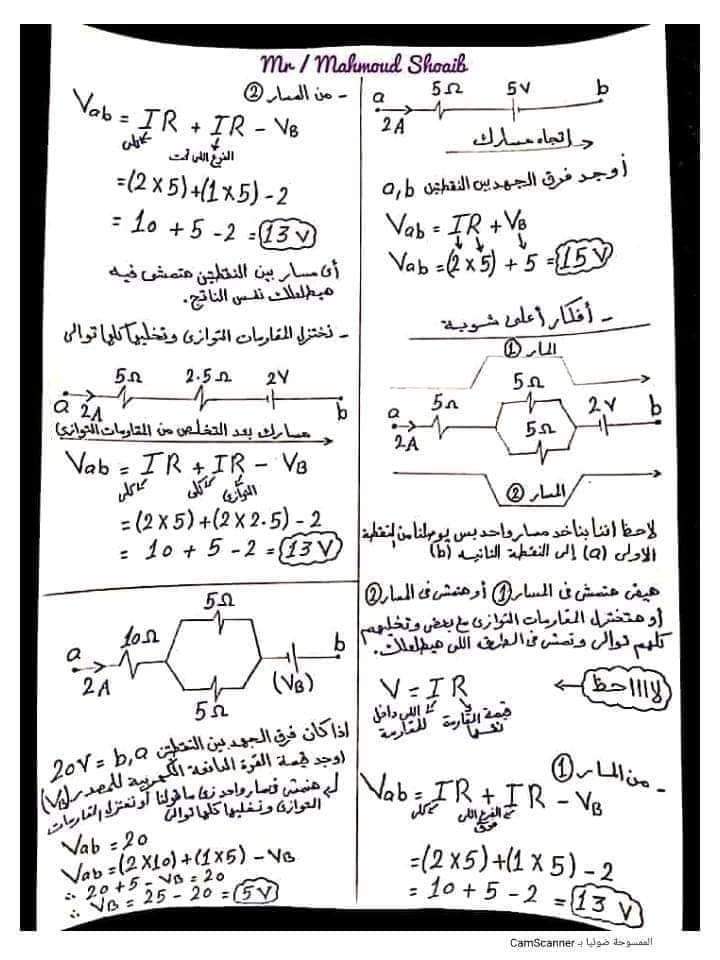 Mr / Mahmoud Shoaib
a 5Ω 5V b
2A
اتجاه مسارك
أوجد فرق الجهد بين النقطتين a,b
Vab = IR + VB
Vab = (2 x 5) + 5 = 15 V
- أفكار أعلى شوية
المسار ①
5Ω
a 5Ω 2V b
2A 5Ω
المسار ②
لاحظ اننا بناخد مسار واحد بس يوصلنا من النقطة
الاولى (a) إلى النقطة الثانيه (b)
هيفن هتمشى فى المسار ① أو هتمشى فى المسار ②
أو هتختزل المقاومات التوازى مع بعض وتخليهم
كلهم توالى وتمشى فى الطريق اللى هيطلعلك.
لاااحظ
V = IR
قيمة المقاومة نفسها
اللى داخل للمقاومة
- من المسار ①
Vab = IR + IR - VB
كلى
الفرع اللى فوق
= (2 x 5) + (1 x 5) - 2
= 10 + 5 - 2 = 13 V
- من المسار ②
Vab = IR + IR - VB
كلى
الفرع اللى تحت
= (2 x 5) + (1 x 5) - 2
= 10 + 5 - 2 = 13 V
أى مسار بين النقطتين هتمشى فيه
هيطلعلك نفس الناتج.
- نختزل المقاومات التوازى وتخليها كلها توالى
5Ω 2.5Ω 2V
a 2A b
مسارك بعد التخلص من المقاومات التوازى
Vab = IR + IR - VB
كلى كلى التوازى
= (2 x 5) + (2 x 2.5) - 2
= 10 + 5 - 2 = 13 V
5Ω
a 10Ω b
2A (VB)
5Ω
اذا كان فرق الجهد بين النقطتين 20V = b,a
اوجد قيمة القوة الدافعة الكهربية للمصدر (VB)
هنمشى فمسار واحد زى ما قولنا أو نختزل المقاومات
التوازى ونخليها كلها توالى
Vab = 20
Vab = (2 x 10) + (1 x 5) - VB
∴ 20 + 5 - VB = 20
∴ VB = 25 - 20 = 5 V
الممسوحة ضوئيا بـ CamScanner